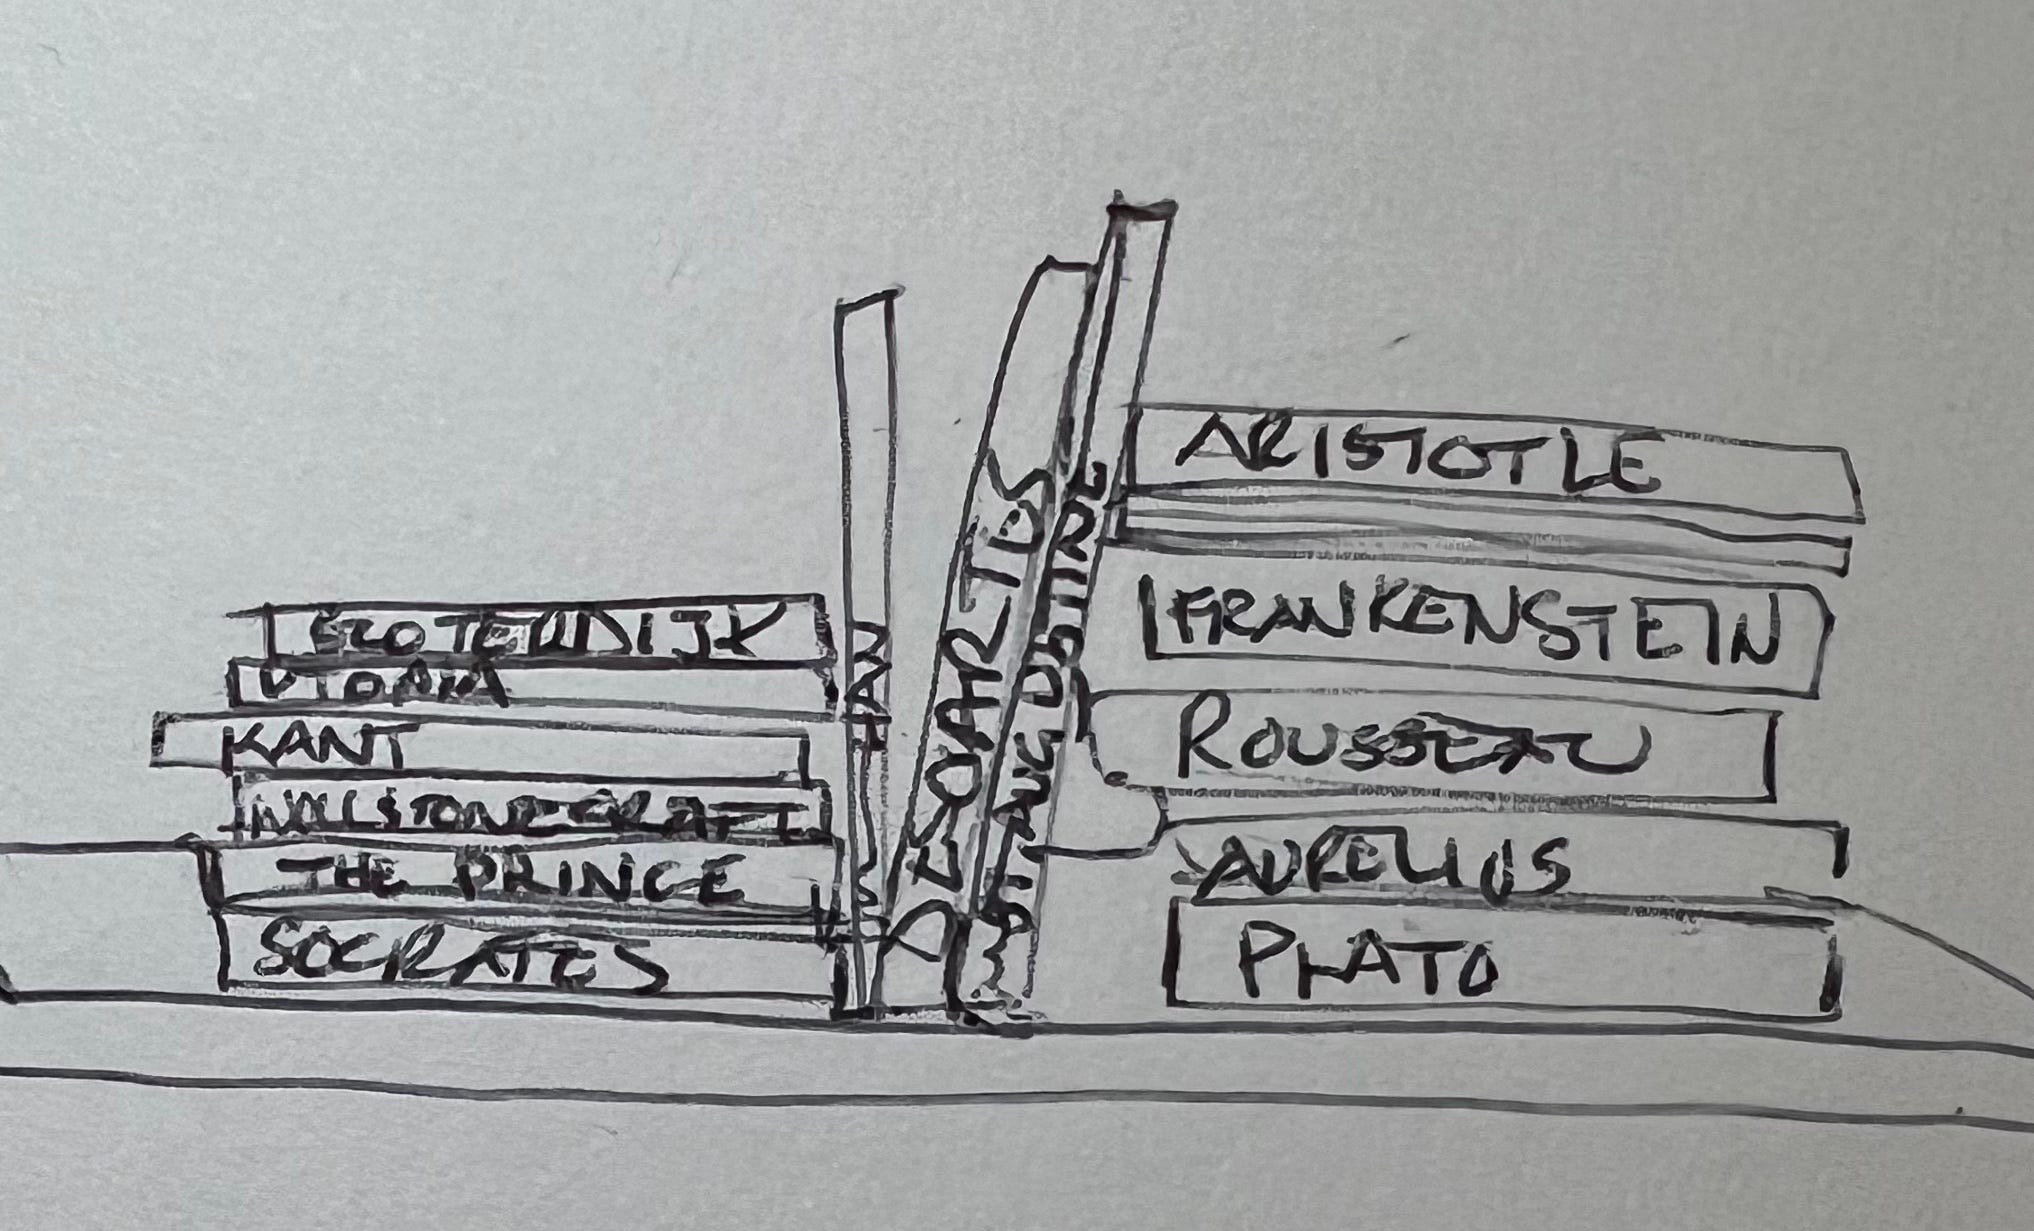 UTOPIA
KANT
WOLLSTONECRAFT
THE PRINCE
SOCRATES
DESCARTES
ST AUGUSTINE
ARISTOTLE
FRANKENSTEIN
ROUSSEAU
AURELIUS
PLATO